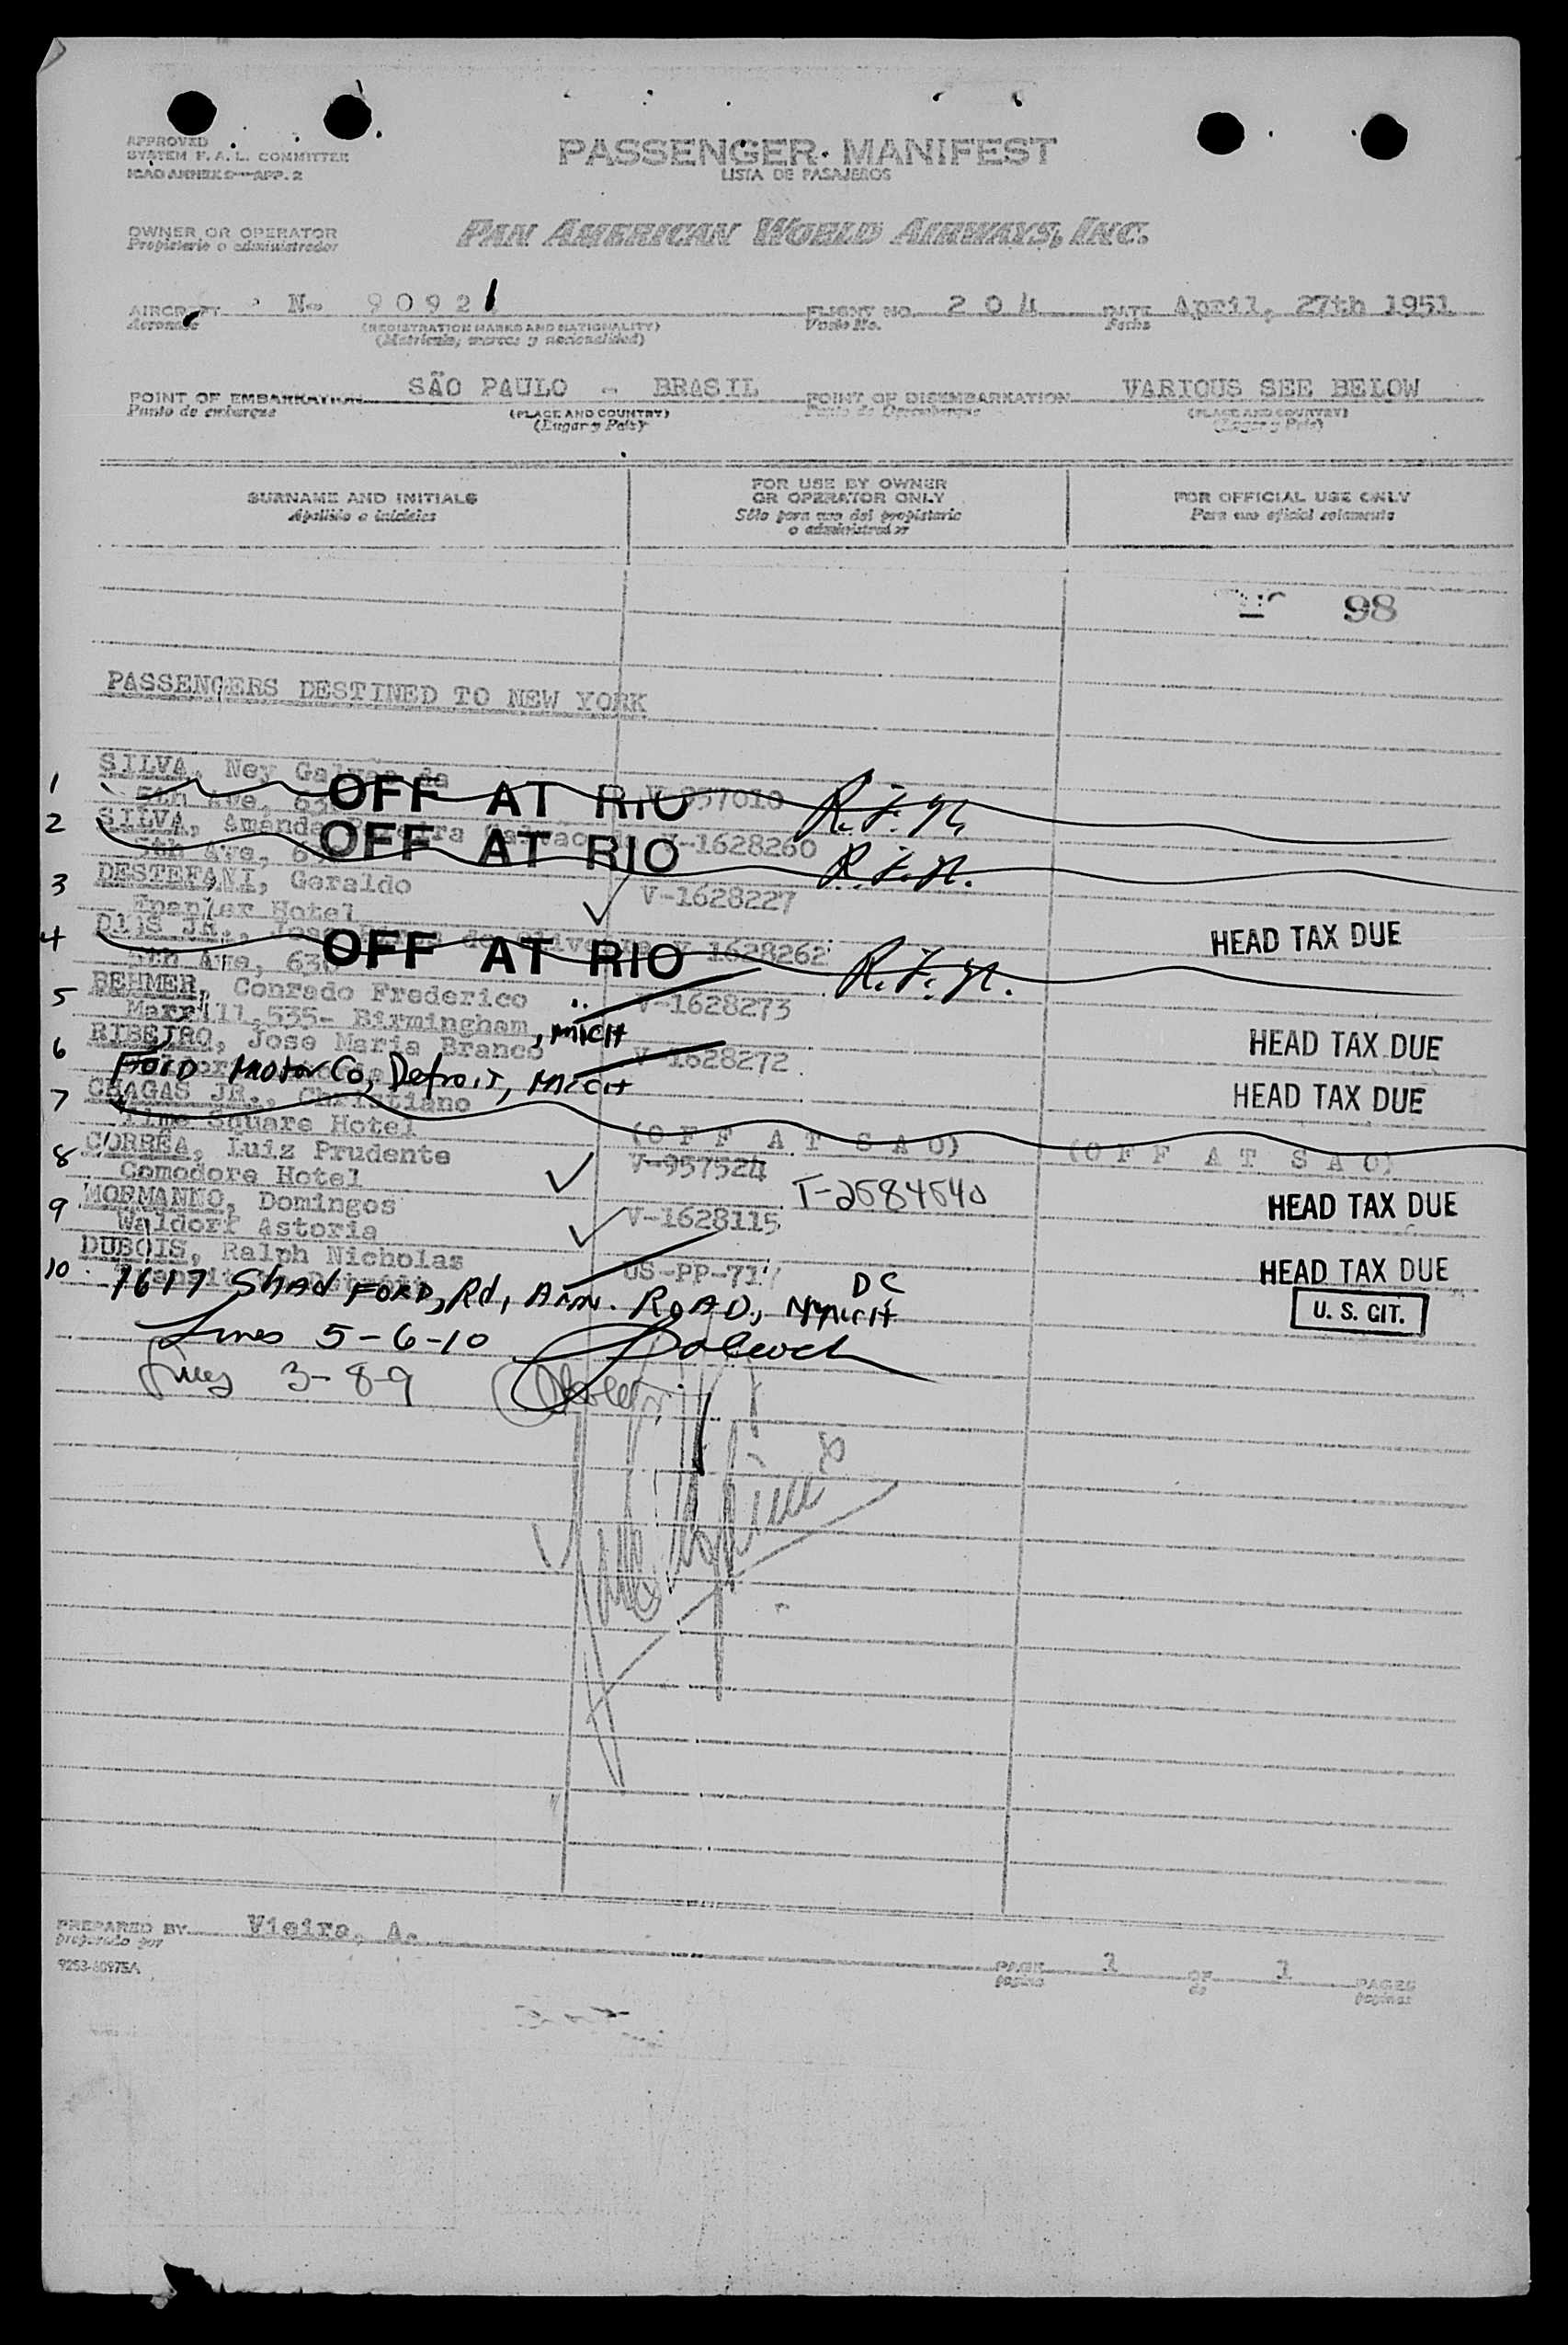 APPROVED
SYSTEM F. A. L. COMMITTEE
ICAO ANNEX 9—APP. 2
PASSENGER MANIFEST
LISTA DE PASAJEROS
OWNER OR OPERATOR
Propietario o administrador
PAN AMERICAN WORLD AIRWAYS, INC.
AIRCRAFT N- 90921
Aeronave
(REGISTRATION MARKS AND NATIONALITY)
(Matricula, marcas y nacionalidad)
FLIGHT NO. 204
Vuelo No.
DATE April, 27th 1951
Fecha
POINT OF EMBARKATION SÃO PAULO - BRASIL
Punto de embarque
(PLACE AND COUNTRY)
(Lugar y Pais)
POINT OF DISEMBARKATION VARIOUS SEE BELOW
Punto de Desembarque
(PLACE AND COUNTRY)
(Lugar y Pais)
SURNAME AND INITIALS
Apellido e iniciales
FOR USE BY OWNER
OR OPERATOR ONLY
Sólo para uso del propietario
o administrador
FOR OFFICIAL USE ONLY
Para uso oficial solamente
98
PASSENGERS DESTINED TO NEW YORK
1 SILVA, Ney Galvão da
5th Ave, 630 OFF AT RIO V-957010 R.F.N.
2 SILVA, Amanda Pereira Galvão da V-1628260
5th Ave, 630 OFF AT RIO R.F.N.
3 DESTEFANI, Geraldo V-1628227
Hotel HEAD TAX DUE
4 DIAS JR., Jose de Oliveira V-1628262
5th Ave, 630 OFF AT RIO R.F.N.
5 BEHMER, Conrado Frederico V-1628273
Merrill, 535- Birmingham, MICH HEAD TAX DUE
6 RIBEIRO, Jose Maria Branco V-1628272
FORD Motor Co, Detroit, MICH HEAD TAX DUE
7 CHAGAS JR., Christiano
Time Square Hotel (OFF AT SAO) (OFF AT SAO)
8 CORRÊA, Luiz Prudente V-957524
Comodore Hotel T-2684640 HEAD TAX DUE
9 MORMANNO, Domingos V-1628115
Waldorf Astoria HEAD TAX DUE
10 DUBOIS, Ralph Nicholas US-PP-717
1617 Shad FORD, Rd, Ann. ROAD, MICH DC
U. S. CIT.
Lines 5-6-10
Lines 3-8-9
PREPARED BY Vieira, A.
preparado por
9253-60975A
PAGE 1 OF 1 PAGES
pagina de paginas